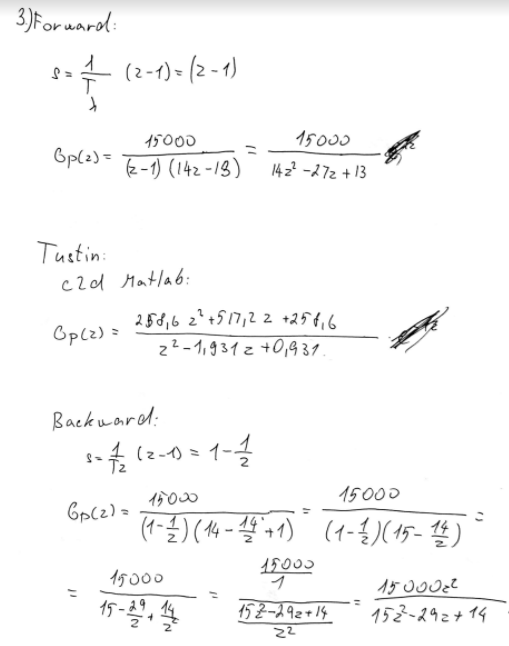 3.) Forward:
s = 1/T (z-1) = (z-1)
1
Gp(z) = 15000/((z-1)(14z-13)) = 15000/(14z² -27z +13)
Tustin:
c2d Matlab:
Gp(z) = (258,6 z² +517,2 z +258,6)/(z² -1,931 z +0,931.)
Backward:
s = 1/Tz (z-1) = 1 - 1/z
Gp(z) = 15000/((1 - 1/z)(14 - 14/z + 1)) = 15000/((1 - 1/z)(15 - 14/z)) =
= 15000/(15 - 29/z + 14/z²) = (15000/1)/((15z² -29z +14)/z²) = 15000z²/(15z² -29z +14)